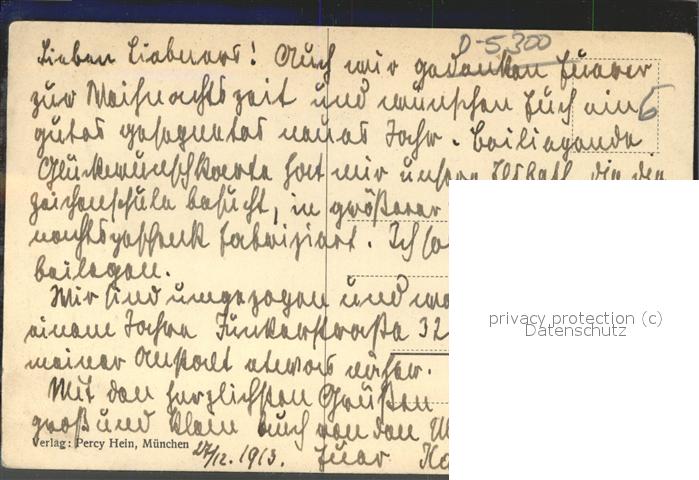 D-5,300
Lieben Liebners! Auch wir gedenken Eurer
zur Weihnachtszeit und wünschen Euch ein 5
gutes gesegnetes neues Jahr. Beiliegende
Glückwunschkarte hat mir unsere Elsbeth, die die
Zeichenschule besucht, in größerer
nachtsgeschenk fabriziert. Ich
beilegen.
Wir sind umgezogen und
einem Jahre Junkerstraße 32
meiner Anstalt etwas näher.
Mit den herzlichsten Grüßen
groß und klein auch von den
Verlag: Percy Hein, München
27/12. 1913. Euer
privacy protection (c)
Datenschutz